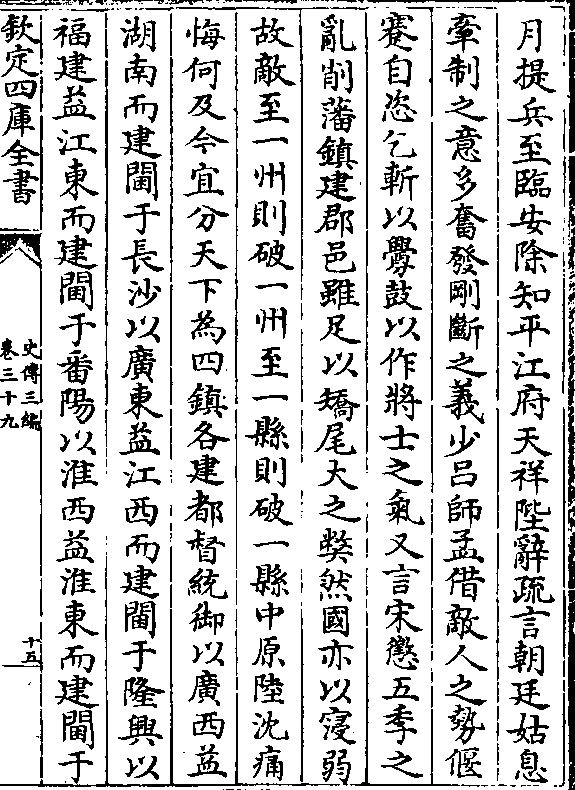 月提兵至臨安除知平江府天祥陛辭疏言朝廷姑息
牽制之意多奮發剛斷之義少呂師孟借敵人之勢偃
蹇自恣乞斬以釁鼓以作將士之氣又言宋懲五季之
亂削藩鎮建郡邑雖足以矯尾大之獘然國亦以寖弱
故敵至一州則破一州至一縣則破一縣中原陸沈痛
悔何及今宜分天下為四鎮各建都督統御以廣西益
湖南而建閫于長沙以廣東益江西而建閫于隆興以
福建益江東而建閫于番陽以淮西益淮東而建閫于
欽定四庫全書
史傳三編
卷三十九
十五